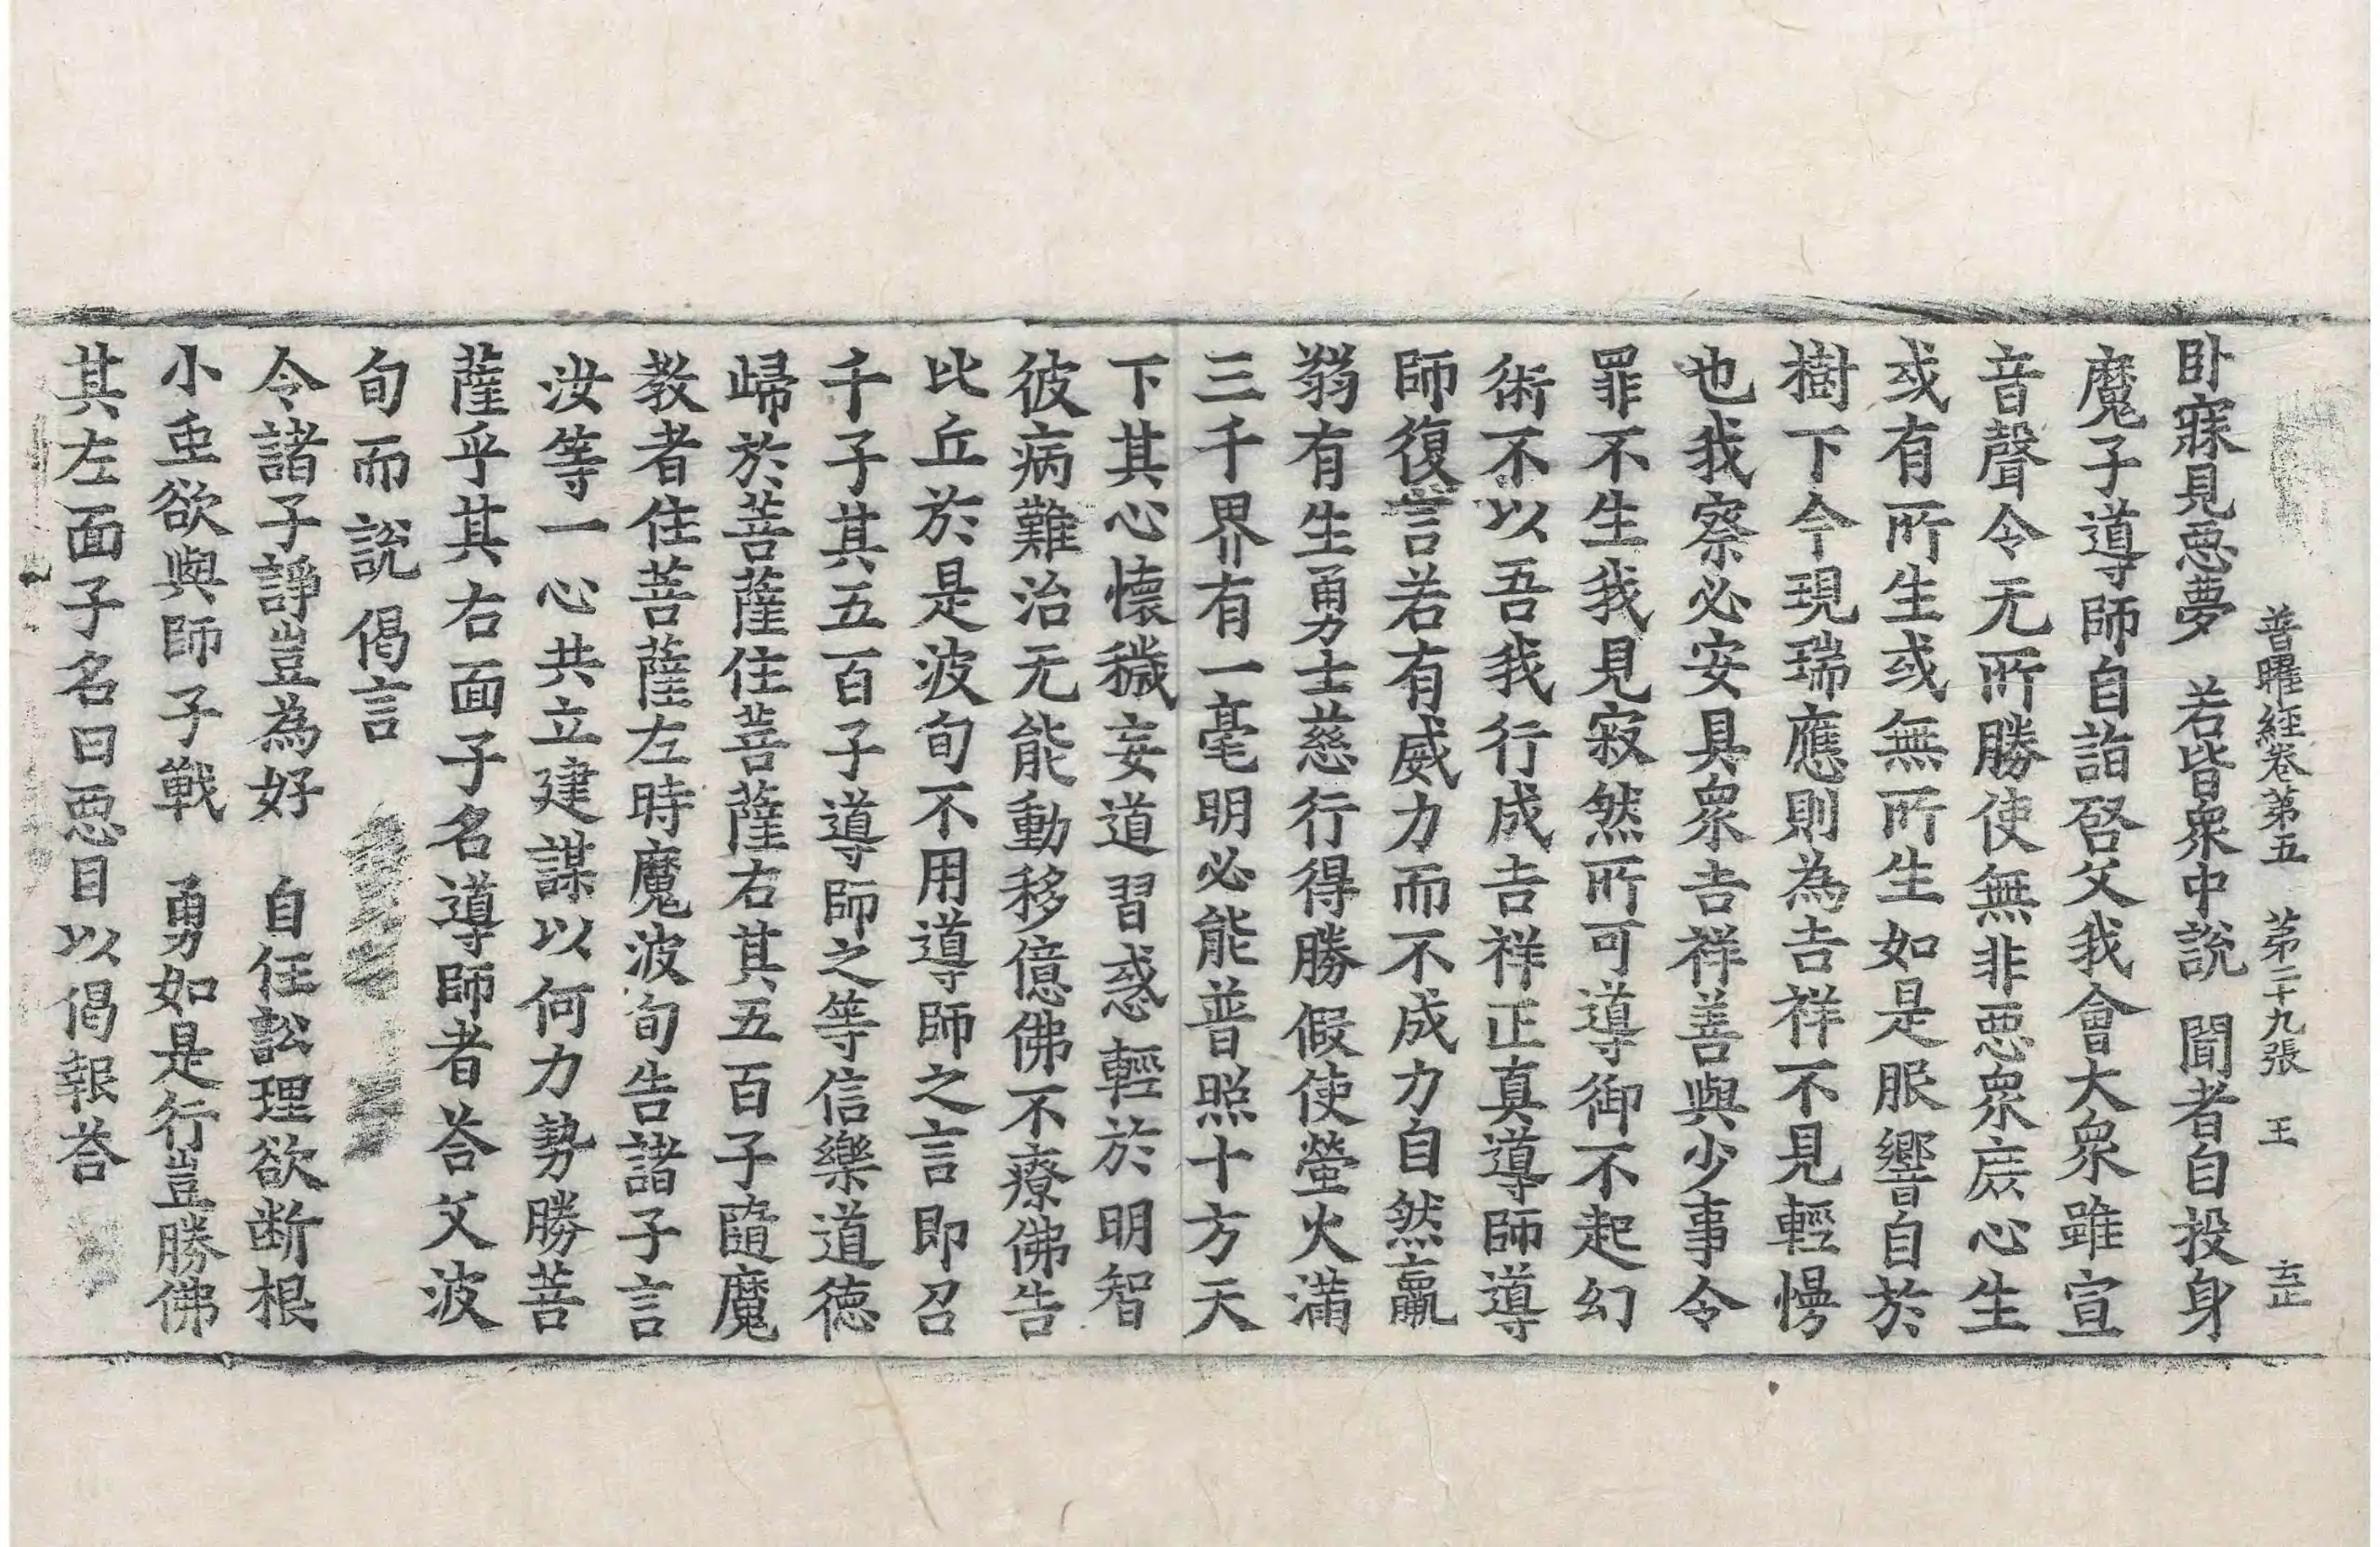 普曜經卷第五　第二十九張　王
卧寐見惡夢　若皆衆中說　聞者自投身
魔子導師自詣啓父我會大衆雖宣
音聲令无所勝使無非惡衆庻心生
或有所生或無所生如是服響自於
樹下今現瑞應則為吉祥不見輕慢
也我察必安具衆吉祥善與少事令
罪不生我見寂然所可導御不起幻
術不以吾我行成吉祥正真導師導
師復言若有威力而不成力自然羸
弱有生勇力士慈行得勝假使螢火滿
三千界有一毫明必能普照十方天
下其心懷穢妄道習惑輕於明智
彼病難治无能動移億佛不療佛告
比丘於是波旬不用導師之言即召
千子其五百子導師之等信樂道德
歸於菩薩住菩薩右其五百子隨魔
教者住菩薩左時魔波旬告諸子言
汝等一心共立建謀以何力勢勝菩
薩乎其右面子名導師者荅父波
旬而說偈言
令諸子諍豈為好　自任訟理欲断根
小䖝欲與師子戰　勇如是行豈勝佛
其左面子名曰惡目以偈報荅